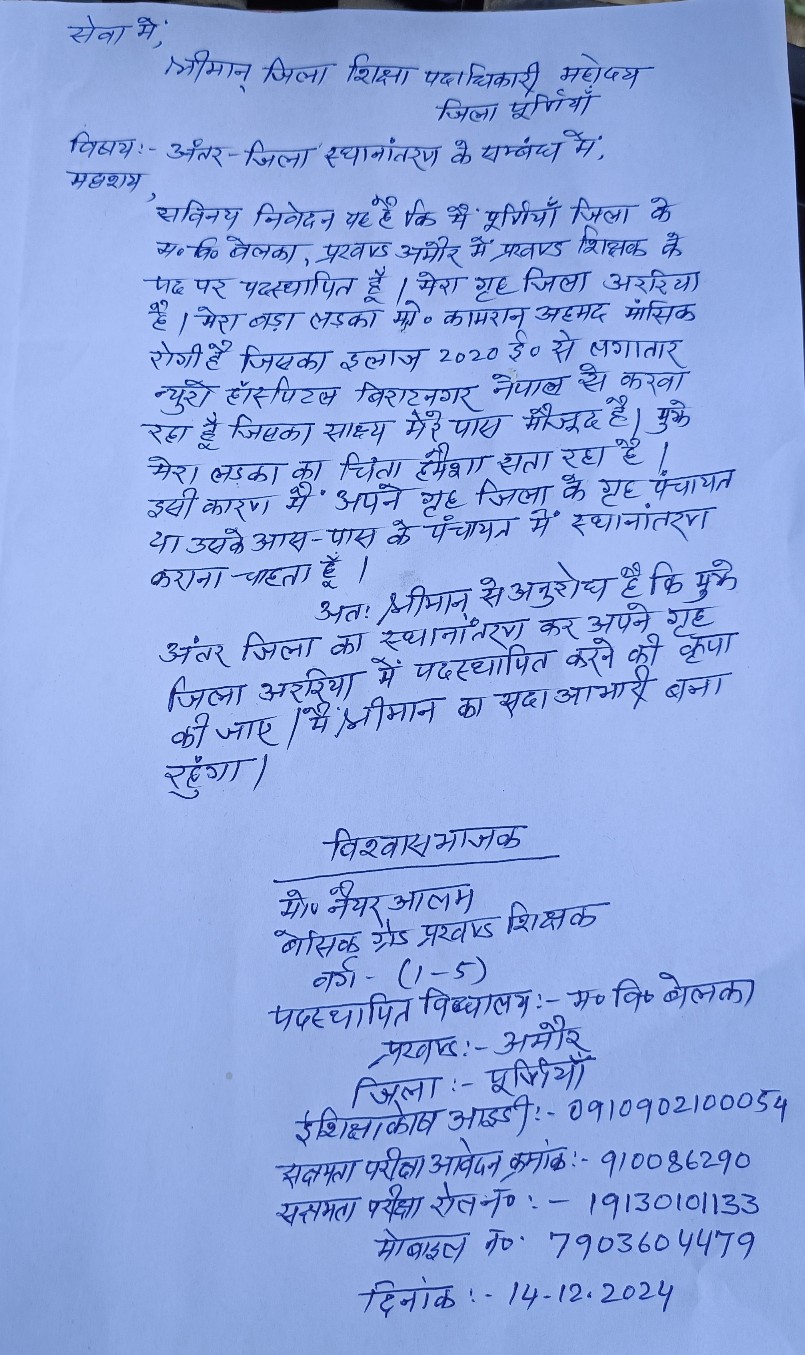 सेवा में,
श्रीमान् जिला शिक्षा पदाधिकारी महोदय
जिला पूर्णियाँ
विषय:- अंतर-जिला स्थानांतरण के सम्बंध में,
महाशय,
सविनय निवेदन यह है कि मैं पूर्णियाँ जिला के
म० वि० बेलका, प्रखण्ड अमौर में प्रखण्ड शिक्षक के
पद पर पदस्थापित हूँ। मेरा गृह जिला अररिया
है। मेरा बड़ा लड़का मो० कामरान अहमद मांसिक
रोगी है जिसका इलाज 2020 ई० से लगातार
न्युरो हॉस्पिटल बिराटनगर नेपाल से करवा
रहा हूँ जिसका साक्ष्य मेरे पास मौजूद है। मुझे
मेरा लड़का का चिंता हमेशा सता रहा है।
इसी कारण मैं अपने गृह जिला के गृह पंचायत
या उसके आस-पास के पंचायत में स्थानांतरण
कराना चाहता हूँ।
अतः श्रीमान् से अनुरोध है कि मुझे
अंतर जिला का स्थानांतरण कर अपने गृह
जिला अररिया में पदस्थापित करने की कृपा
की जाए। मैं श्रीमान का सदा आभारी बना
रहुंगा।
विश्वासभाजक
मो० नैयर आलम
बेसिक ग्रेड प्रखण्ड शिक्षक
वर्ग - (1-5)
पदस्थापित विध्यालय:- म० वि० बेलका
प्रखण्ड:- अमौर
जिला:- पूर्णियाँ
ई शिक्षाकोष आइडी:- 0910902100054
सक्षमता परीक्षा आवेदन क्रमांक:- 910086290
सक्षमता परीक्षा रोल न० :- 19130101133
मोबाइल न० 7903604479
दिनांक:- 14-12.2024